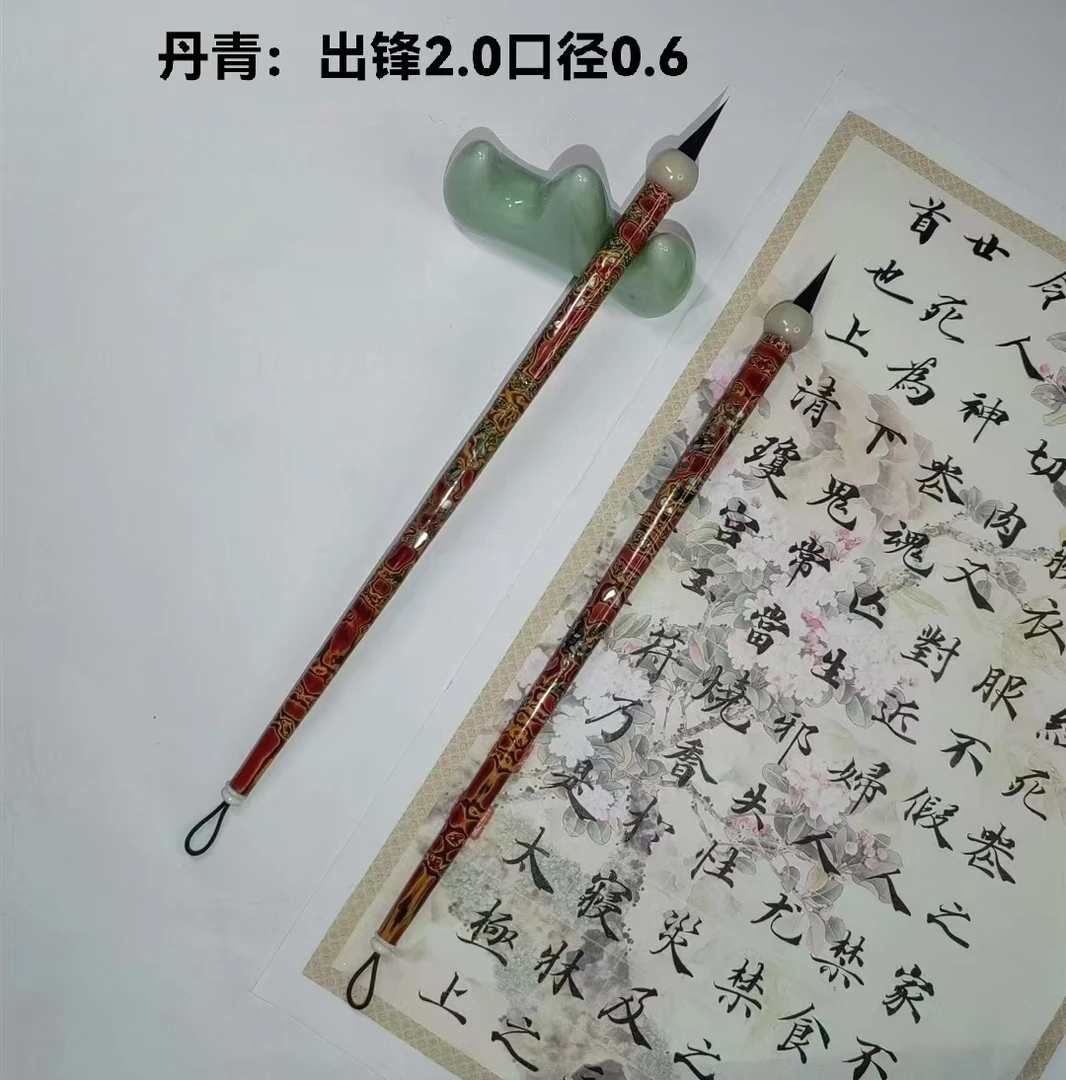 丹青：出锋2.0口径0.6
經死喪之家不
衣服不假人禁食
切肉又對近婦人尤禁之
令人神喪魂亡生邪失性災及
世死為下鬼常當燒香於寢牀之
首也上清瓊宮玉符乃是太極上